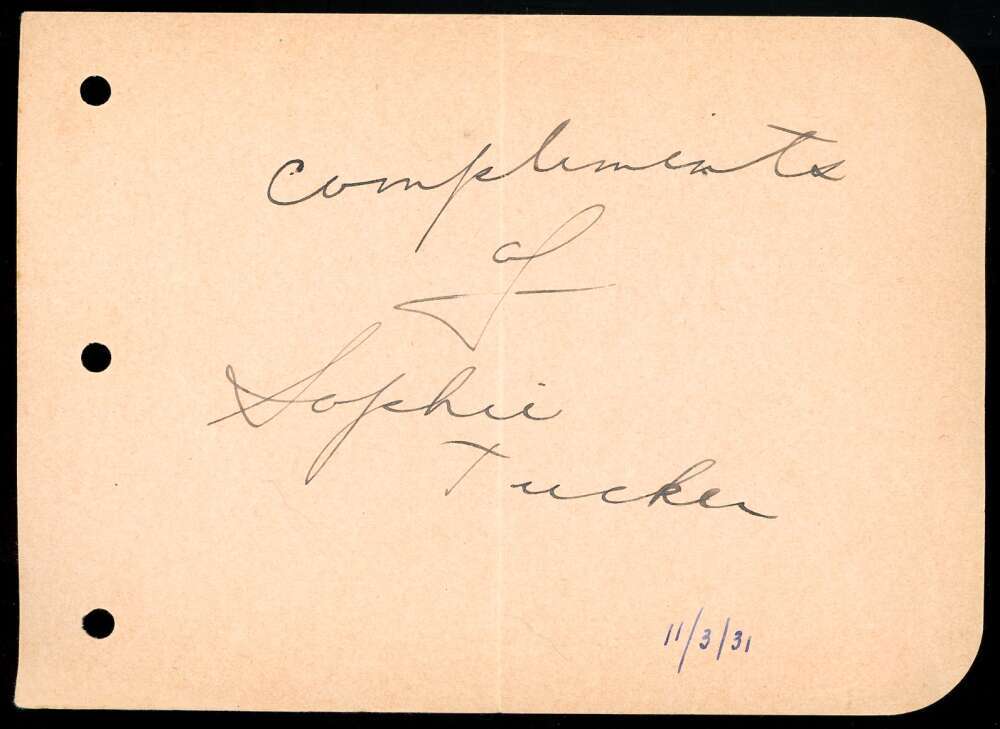 compliments
of
Sophie
Tucker
11/3/31